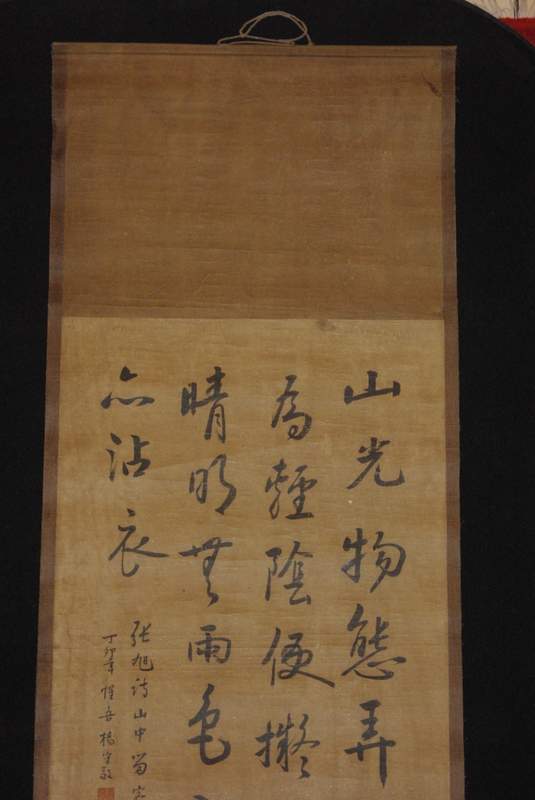 山光物態弄
為輕陰便擬
晴明無雨色
亦沾衣
張旭詩山中留客
丁卯年惺吾楊守敬